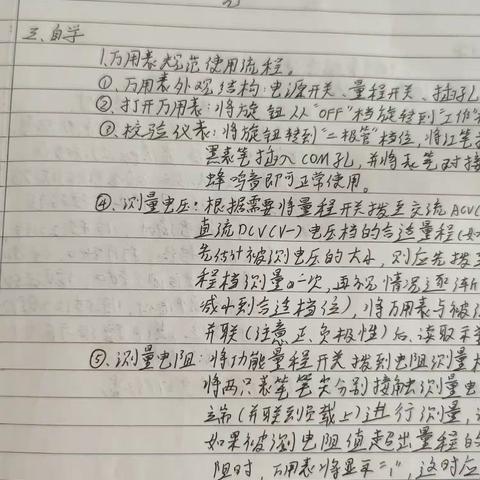 三、自学
1.万用表规范使用流程。
①、万用表外观结构:电源开关、量程开关、插孔
②、打开万用表:将旋钮从“OFF”档旋转到“工作”
③、校验仪表:将旋钮转到“二极管”档位,将红笔
黑表笔插入COM孔,并将表笔对接
蜂鸣音即可正常使用。
④、测量电压:根据需要将量程开关拨至交流ACV(
直流DCV(V-)电压档的合适量程(如
先估计被测电压的大小,则应先拨至
程档测量一次,再视情况逐渐
减小到合适档位),将万用表与被
并联(注意正、负极性)后、读取
⑤、测量电阻:将功能量程开关拨到电阻测量
将两只表笔笔尖分别接触测量电
端(并联到负载上)进行测量,
如果被测电阻值超出量程的
阻时,万用表将显示“1”,这时应